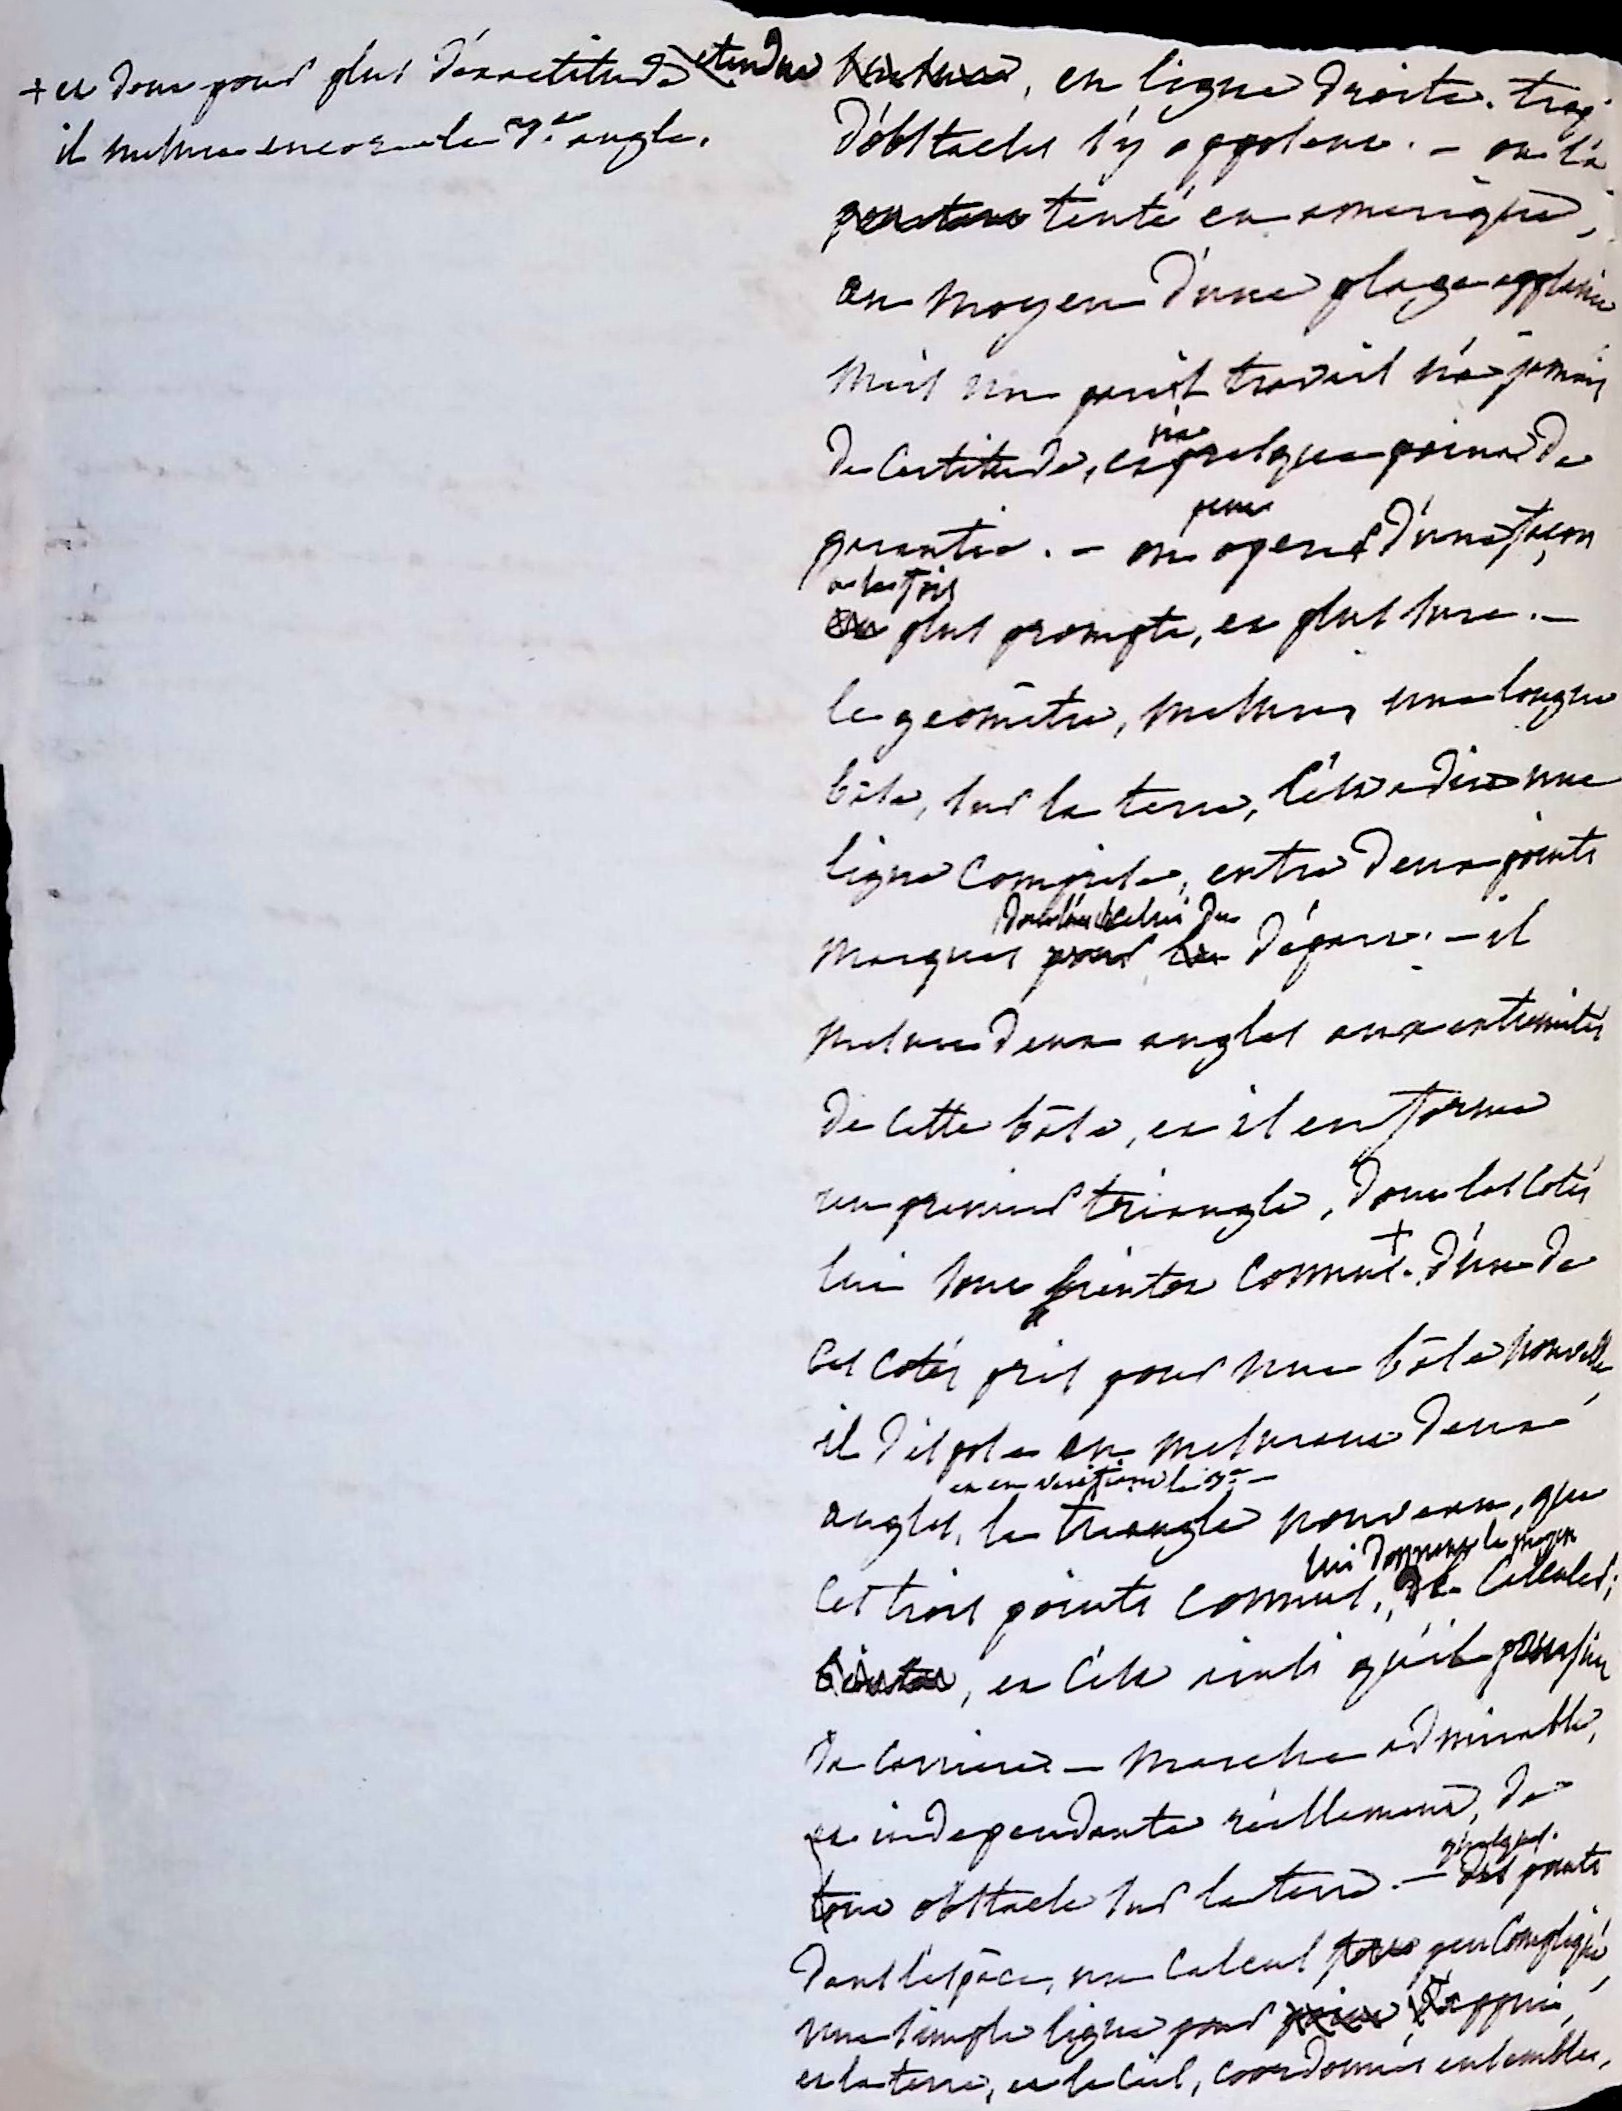 + et dont pour plus d'exactitude
il mesure encore le 3.e angle.
étendue, en ligne droite. trop
d'obstacles s'y opposent. – on l'a
tenté en amerique,
au moyen d'une plage applanie
mais un pareil travail n'a jamais
de certitude, et n'a presque point de
garantie. – on peut operer d'une façon
a la fois plus prompte, et plus sure. –
le geomètre, mesure, une longue
bâse, sur la terre, c'est a dire une
ligne comprise, entre deux points
marqués dont l'un est celui du départ. – il
mesure deux angles aux extremités
de cette bâse, et il en forme
un premier triangle, dont les cotés
lui sont bientot connus. + d'un de
ces cotés pris pour une bâse nouvelle
il dispose en mesurant deux
angles, et en verifiant le 3.e – le triangle nouveau, que
ces trois points connus, lui donnent le moyen de calculer;
et c'est ainsi qu'il poursuit
sa carriere – marche admirable,
et independante réellement, de
tout obstacle sur la terre. – quelques points
dans l'espace, un calcul peu compliqué,
une simple ligne pour appui,
et la terre, et le ciel, coordonnés ensembles,